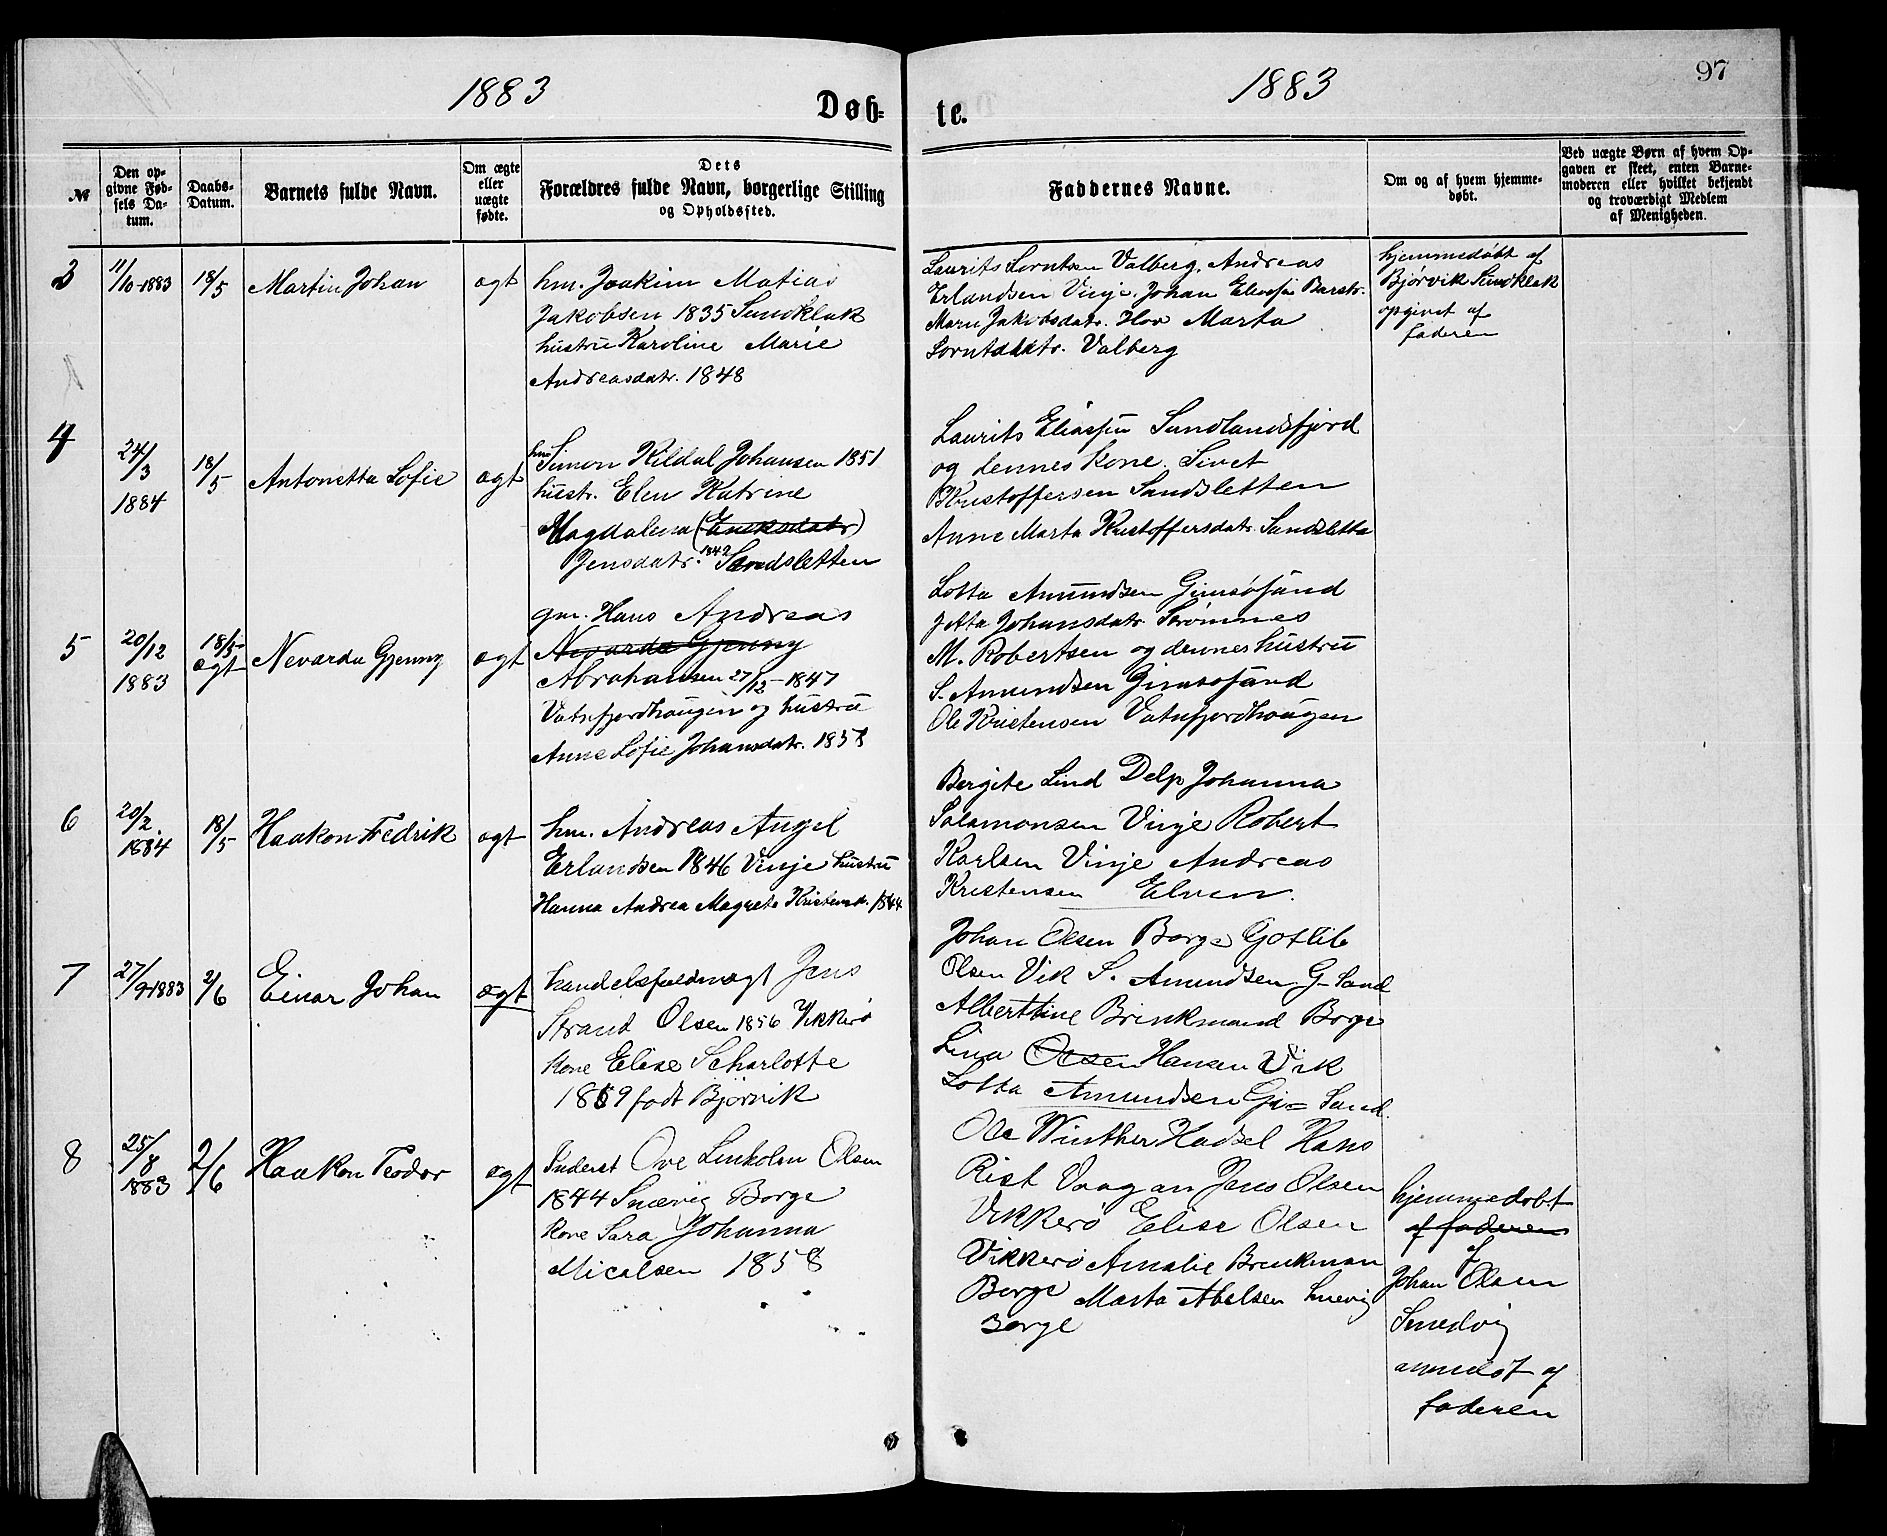 1883
Døb-
№
Den op-
givne Fød-
sels Da-
tum.
Daabs-
Datum.
Barnets fulde Navn.
Om ægte
eller
uægte
fødte.
Dets
Forældres fulde Navn, borgerlige Stilling
og Opholdssted.
3
11/10-1883
18/5
Martin Johan
ægt
hm. Joakim Matias
Jakobsen 1835 Sundklak
hustru Karoline Marie
Andreasdatr. 1848
4
24/3
1884
18/5
Antonetta Sofie
ægt
hm Simon Kildal Johansen 1851
hustr. Elen Katrine
Magdalena (Enoksdatr)
Jensdatr. 1842 Sandsletten
5
20/12
1883
18/5
ægt
Nevarda Gjenny
ægt
gm. Hans Andreas
Nevarda Gjenny
Abrahamsen 27/12-1847
Vatnfjordhaugen og hustru
Anne Sofie Johansdatr. 1858
6
20/2
1884
18/5
Haakon Fredrik
ægt
hm. Andreas Angel
Erlandsen 1846 Vinje hustru
Hanna Andrea Magrete Kristensd. 1844
7
27/9-1883
2/6
Einar Johan
ægt
handelsfuldmægt Jens
Strand Olsen 1856 Vikkerø
kone Elise Scharlotte
1859 født Bjørvik
8
25/8
1883
2/6
Haakon Teodor
ægt
Inderst Ove Linkolen Olsen
1844 Snævig Borge
Kone Sara Johanna
Micalsen 1858
1883
97
te.
Faddernes Navne.
Om og af hvem hjemme-
døbt.
Ved uægte Børn af hvem Op-
gaven er skeet, enten Barne-
moderen eller hvilket bekjendt
og troværdigt Medlem
af Menigheden.
Laurits Lorntsen Valberg. Andreas
Erlandsen Vinje. Johan Eliassen Barstr.
Maru Jakobsdatr. Hov Marta
Lorntsdatr. Valberg
hjemmedøbt af
Bjørvik Sundklak
opgivet af
faderen
Laurits Eliassen Sundlandsfjord
og dennes kone. Sivet
Kristoffersen Sandsletten
Anne Marta Kristoffersdatr. Sandsletta
Lotta Amundsen Gimsøsand
Jetta Johansdatr. Strømnes
M. Robertsen og dennes hustru
S. Amundsen Gimsøsand
Ole Kristensen Vatnfjordhaugen
Bergite Lind Delp Johanna
Salamonsen Vinje Robert
Karlsen Vinje Andreas
Kristensen Elven.
Johan Olsen Borge Gotlib
Olsen Vik S. Amundsen G-Sand
Alberttine Brinkmand Borge
Lina Olsen Hansen Vik
Lotta Amundsen Gi= Sand.
Ole Winther Hadsel Hans
Rist Vaagan Jens Olsen
Vikkerø Elise Olsen
Vikkerø Amalie Brinkman
Borge Marta Abelsen Snevig
Borge
hjemmedøbt
af faderen
af
Johan Olsen
Smedvig
anmeldt af
faderen